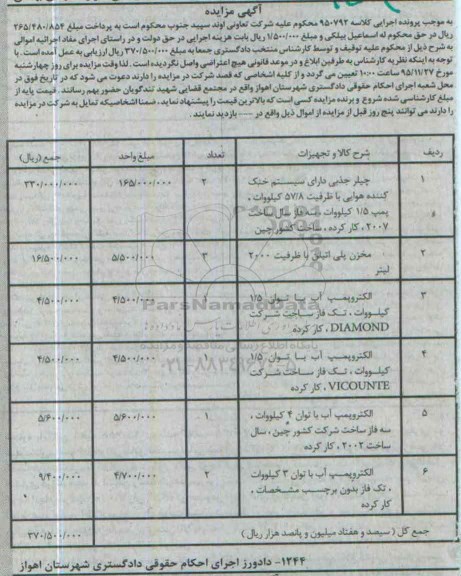 آگهی مزایده
به موجب پرونده اجرایی کلاسه ۹۵۰۷۹۲ محکوم علیه شرکت تعاونی اوند سپید جنوب محکوم است به پرداخت مبلغ ۲۶۵/۴۸۰/۸۵۴
ریال در حق محکوم له اسماعیل بیلکی و مبلغ ۱/۵۰۰/۰۰۰ ریال بابت هزینه اجرایی در حق دولت و در راستای اجرای مفاد اجرائیه اموالی
به شرح ذیل از محکوم علیه توقیف و توسط کارشناس منتخب دادگستری جمعا به مبلغ ۳۷۰/۵۰۰/۰۰۰ ریال ارزیابی به عمل آمده است. با
توجه به اینکه نظریه کارشناس به طرفین ابلاغ و در موعد قانونی هیچ اعتراضی واصل نگردیده است. لذا وقت مزایده برای روز چهارشنبه
مورخ ۹۵/۱۱/۲۷ ساعت ۱۰:۰۰ تعیین می گردد و از کلیه اشخاصی که قصد شرکت در مزایده را دارند دعوت می شود که در تاریخ فوق در
محل شعبه اجرای احکام حقوقی دادگستری شهرستان اهواز واقع در مجتمع قضایی شهید تندگویان حضور بهم رسانند. قیمت پایه از
مبلغ کارشناسی شده شروع و برنده مزایده کسی است که بالاترین قیمت را پیشنهاد نماید. ضمنا اشخاصیکه تمایل به شرکت در مزایده
را دارند می توانند پنج روز قبل از مزایده از اموال ذیل واقع در ...... بازدید نمایند.
ردیف شرح کالا و تجهیزات تعداد مبلغ واحد جمع (ریال)
۱ چیلر جذبی دارای سیستم خنک ۲ ۱۶۵/۰۰۰/۰۰۰ ۳۳۰/۰۰۰/۰۰۰
کننده هوایی با ظرفیت ۵۷/۸ کیلووات،
پمپ ۱/۵ کیلووات سه فاز سال ساخت
۲۰۰۷، کار کرده، ساخت کشور چین
۲ مخزن پلی اتیلن با ظرفیت ۲۰۰۰ ۳ ۵/۵۰۰/۰۰۰ ۱۶/۵۰۰/۰۰۰
لیتر
۳ الکتروپمپ آب با توان ۱/۵ ۱ ۴/۵۰۰/۰۰۰ ۴/۵۰۰/۰۰۰
کیلووات، تک فاز ساخت شرکت
DIAMOND، کار کرده
۴ الکتروپمپ آب با توان ۱/۵ ۱ ۴/۵۰۰/۰۰۰ ۴/۵۰۰/۰۰۰
کیلووات، تک فاز ساخت شرکت
VICOUNTE، کار کرده
۵ الکتروپمپ آب با توان ۴ کیلووات، ۱ ۵/۶۰۰/۰۰۰ ۵/۶۰۰/۰۰۰
سه فاز ساخت شرکت کشور چین، سال
ساخت ۲۰۰۲، کار کرده
۶ الکتروپمپ آب با توان ۳ کیلووات ۲ ۴/۷۰۰/۰۰۰ ۹/۴۰۰/۰۰۰
، تک فاز بدون برچسب مشخصات،
کار کرده
جمع کل (سیصد و هفتاد میلیون و پانصد هزار ریال) ۳۷۰/۵۰۰/۰۰۰
۱۲۴۴- دادورز اجرای احکام حقوقی دادگستری شهرستان اهواز
ParsNamadData
۰۲۱-۸۸۳۴۹۶۷۰